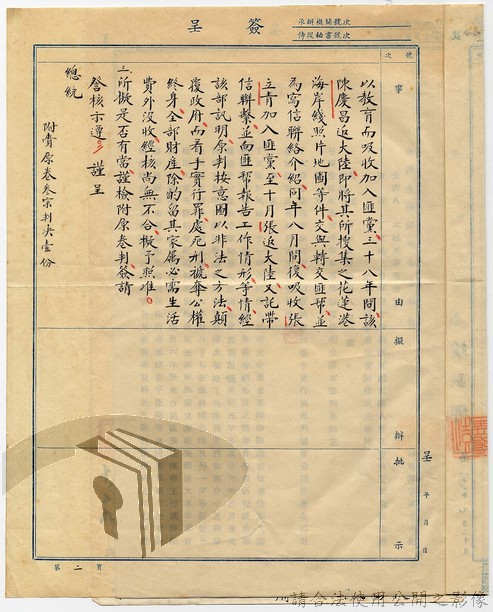 簽呈
承辦機關號次
傳從秘書號次
號次
事由擬辦批示
以教育而吸收加入匪黨、三十八年間、該
陳慶昌返大陸、即將其所搜集之花蓮港
海岸綫照片地圖等件、交與轉交匪幫、並
為寫信聯絡介紹、同年八月間、復吸收張
立青加入匪黨、至十月張返大陸、又託帶
信聯繫、並向匪幫報告工作情形等情、經
該部訊明、原判按意圖以非法之方法、顛
覆政府、而着手實行罪、處死刑、褫奪公權
終身、全部財產、除酌留其家屬必需生活
費外沒收、經核尚無不合、擬予照准。
三、所擬是否有當、謹檢附原卷判、簽請
詧核示遵。謹呈
總統
附賫原卷叁宗判決壹份
呈 年 月 日
第二頁
請合法使用公開之影像